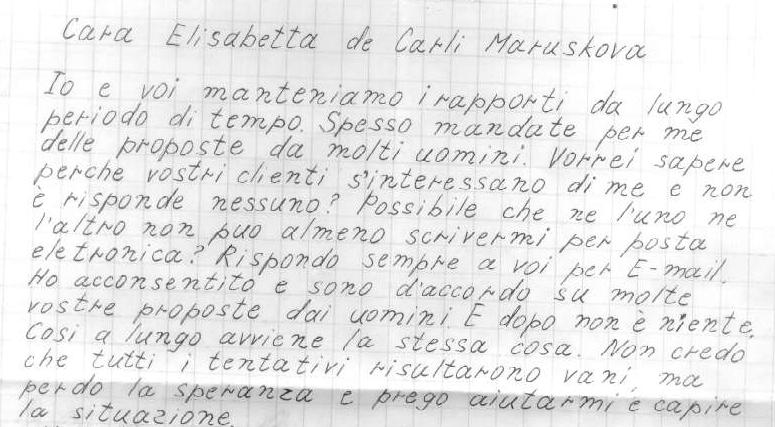 Cara Elisabetta de Carli Maruskova
Io e voi manteniamo i rapporti da lungo
periodo di tempo. Spesso mandate per me
delle proposte da molti uomini. Vorrei sapere
perche vostri clienti s'interessano di me e non
è risponde nessuno? Possibile che ne l'uno ne
l'altro non puo almeno scrivermi per posta
eletronica? Rispondo sempre a voi per E-mail.
Ho acconsentito e sono d'accordo su molte
vostre proposte dai uomini. E dopo non è niente.
Cosi a lungo avviene la stessa cosa. Non credo
che tutti i tentativi risultarono vani, ma
perdo la speranza e prego aiutarmi e capire
la situazione.